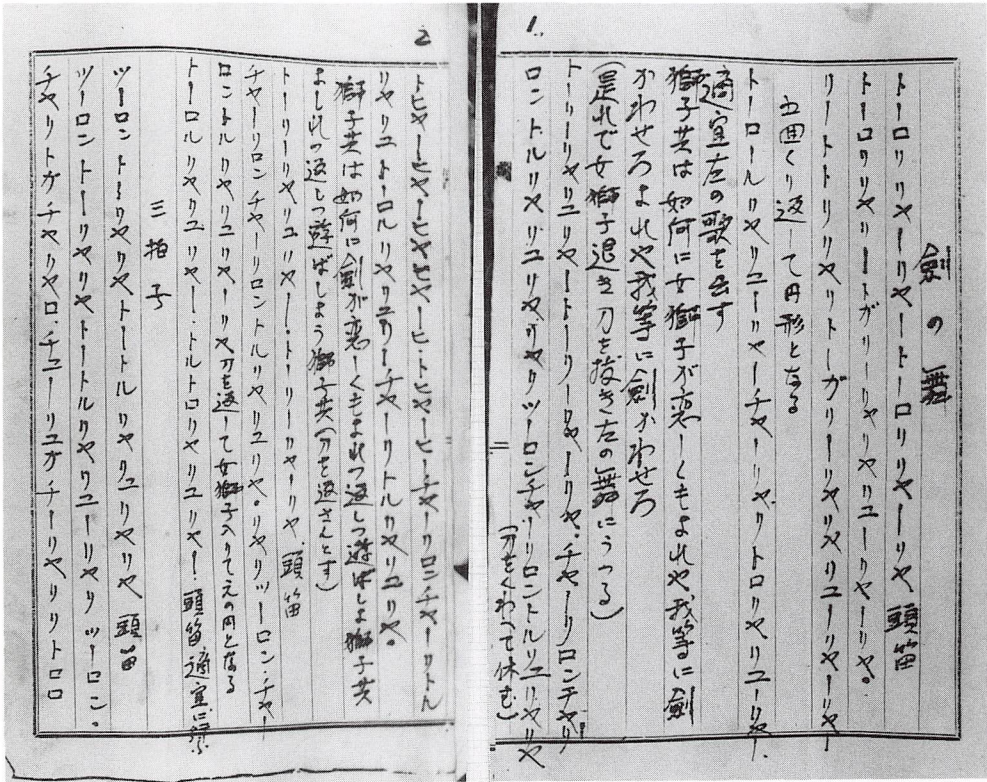 1.
劍の舞
トーロリリャーリャートーロリリャーリャ 頭笛
トーロリリャリートガリーリャリャリユーリャーリャ。
リートトリリリャリトーガリーリャリャリユーリャーリャー
五囬くり返して円形となる
トーロールリャリユーリャーチャーリャリトロリャリユーリャー
適宜左の歌を出す
獅子共は如何に女獅子が恋しくもよれや我等に劍
かわせろよれや我等に劍かわせろ
(是れで女獅子退き刀を抜き左の舞にうつる)
トーリーリャリユリャートーリーリャーリャ。チャーリロンチャリ
ロントルリャリユリャリャリツーロンチャーリロントルリユリャリャ
(刀をくわへて休む)
2
トヒャーヒャーヒャヒャーヒ・トヒャーヒーチャーリロンチャーリトル
リャリユトーロルリャリユリーチャーリトルリャリユリャ。
獅子共は如何に劍が恋しくもよれつ返しつ遊ばしよ獅子共
よしれつ返しつ遊ばしよう獅子共(刀を返さんとす)
トーリーリャリユリャー・トーリーリャーリャ 頭笛
チャーリロンチャーリロントルリャリユリャ。リャリツーロンチャー
ロントルリャリユリャーリャ刀を返して女獅子入りて元の円となる
トーロルリャリユリャー・トルトロリャリユリャー 頭笛適宜に
三拍子
ツーロントーリャリャトートルリャリユリャリャ 頭笛
ツーロントーリャリャトートルリャリユーリャリツーロン。
チャリトガチャリャロ・チユーリユガチーリャリリトロ